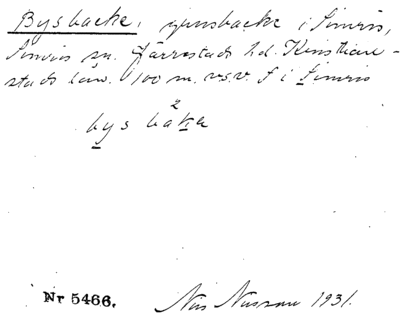 Bysbacke, grusbacke i Simris,
Simris sn. Järrestads hd. Kristian-
stads län. 100 m. v.s.v. S i Simris
2
bys baka
Nr 5466.
Nils 1931.